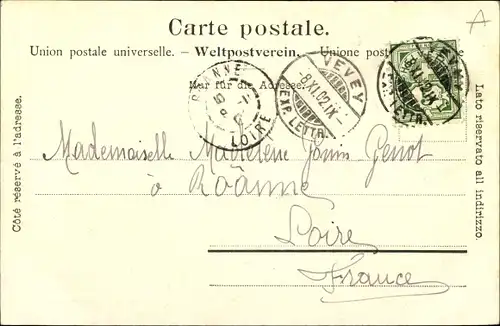 Carte postale.
Union postale universelle. – Weltpostverein. – Unione postale
Nur für die Adresse.
Côté réservé à l'adresse.
Lato riservato all indirizzo.
A
ROANNE
LOIRE
VEVEY
8.XI.02.IX–
EXP. LETTR.
VEVEY
EXP. LETTR.
Mademoiselle Madeleine Janin Genot
à Roanne
Loire
France